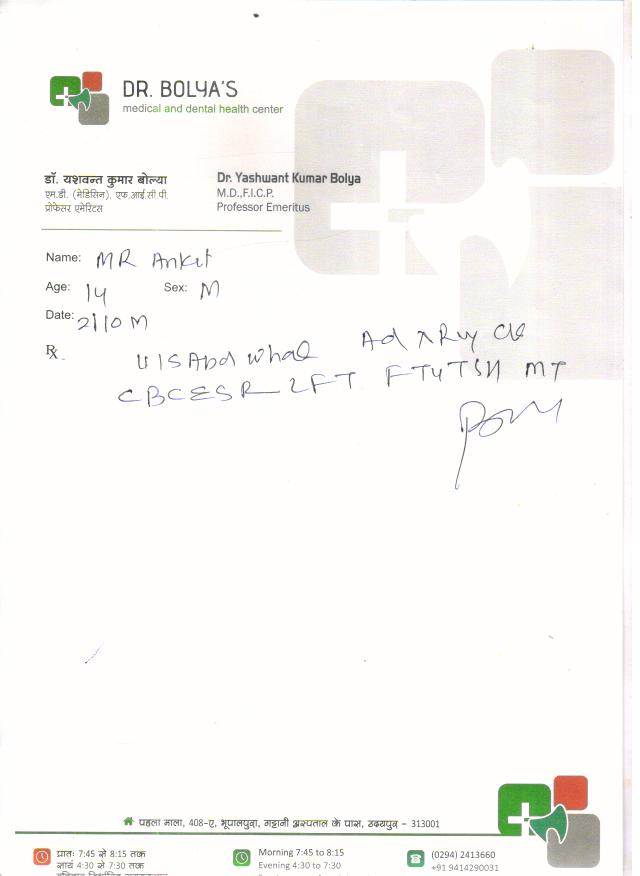 DR. BOLYA'S
medical and dental health center
डॉ. यशवन्त कुमार बोल्या
एम.डी. (मेडिसिन), एफ.आई.सी.पी.
प्रोफेसर एमेरिटस
Dr. Yashwant Kumar Bolya
M.D.,F.I.C.P.
Professor Emeritus
Name: MR Ankit
Age: 14 Sex: M
Date: 2/10 M
℞
USAbd whole Ad XRay
CBCESR LFT FT4TSH MT
पहला माला, 408-ए, भूपालपुरा, गट्टानी अस्पताल के पास, उदयपुर – 313001
प्रातः 7:45 से 8:15 तक
सायं 4:30 से 7:30 तक
Morning 7:45 to 8:15
Evening 4:30 to 7:30
(0294) 2413660
+91 9414290031